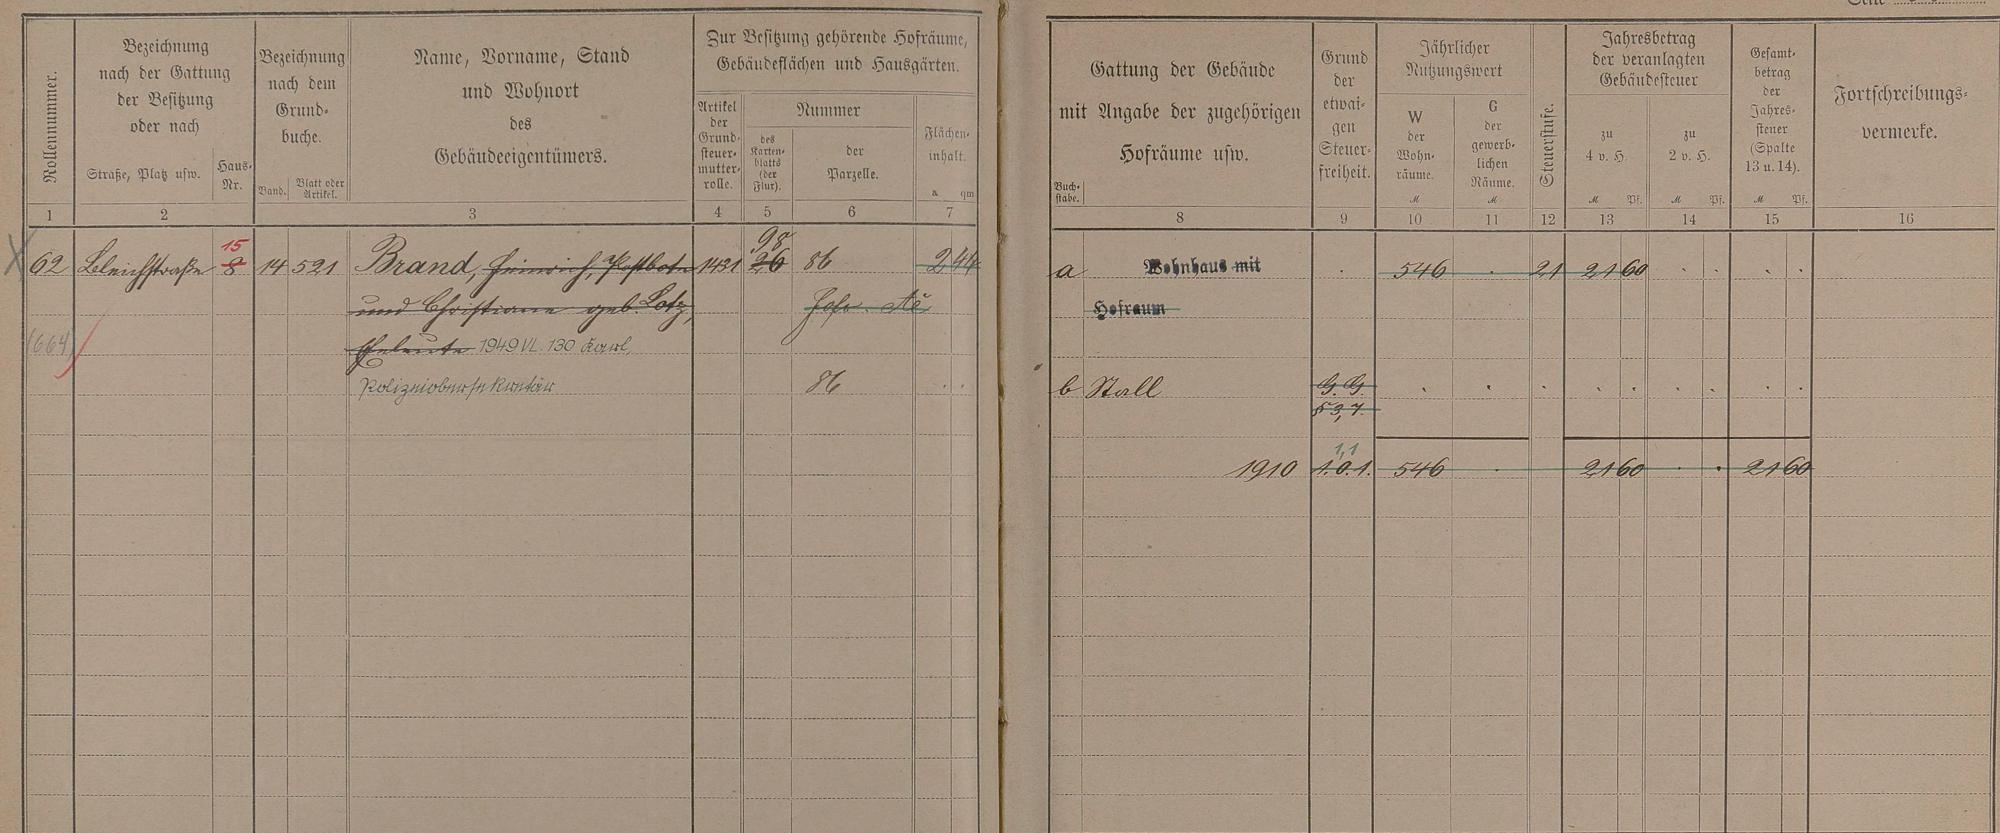 Seite
Rollennummer.
Bezeichnung
nach der Gattung
der Besitzung
oder nach
Straße, Platz usw.
Haus-
Nr.
Bezeichnung
nach dem
Grund-
buche.
Band.
Blatt oder
Artikel.
Name, Vorname, Stand
und Wohnort
des
Gebäudeeigentümers.
Zur Besitzung gehörende Hofräume,
Gebäudeflächen und Hausgärten.
Artikel
der
Grund-
steuer-
mutter-
rolle.
Nummer
des
Karten-
blatts
(der
Flur).
der
Parzelle.
Flächen-
inhalt.
a qm
1 2 3 4 5 6 7
15
98
62 Bleichstraße 8 14 521 Brand, Heinrich, Postbote 1431 26 86 2 44
und Christiane geb. Lotz,
Eheleute 1949 VI. 130 Karl,
(664)
Polizeiobersekretär 86
Gattung der Gebäude
mit Angabe der zugehörigen
Hofräume usw.
Buch-
stabe.
Grund
der
etwai-
gen
Steuer-
freiheit.
Jährlicher
Nutzungswert
W
der
Wohn-
räume.
M
G
der
gewerb-
lichen
Räume.
M
Steuerstufe.
Jahresbetrag
der veranlagten
Gebäudesteuer
zu
4 v. H.
M Pf.
zu
2 v. H.
M Pf.
Gesamt-
betrag
der
Jahres-
steuer
(Spalte
13 u. 14).
M Pf.
Fortschreibungs-
vermerke.
8 9 10 11 12 13 14 15 16
a Wohnhaus mit . 546 . 21 21 60 . . . .
Hofraum
b Stall G. G. . . . . . . . . .
53,7.
1,1
1910 1.0.1. 546 . 21 60 . . 21 60